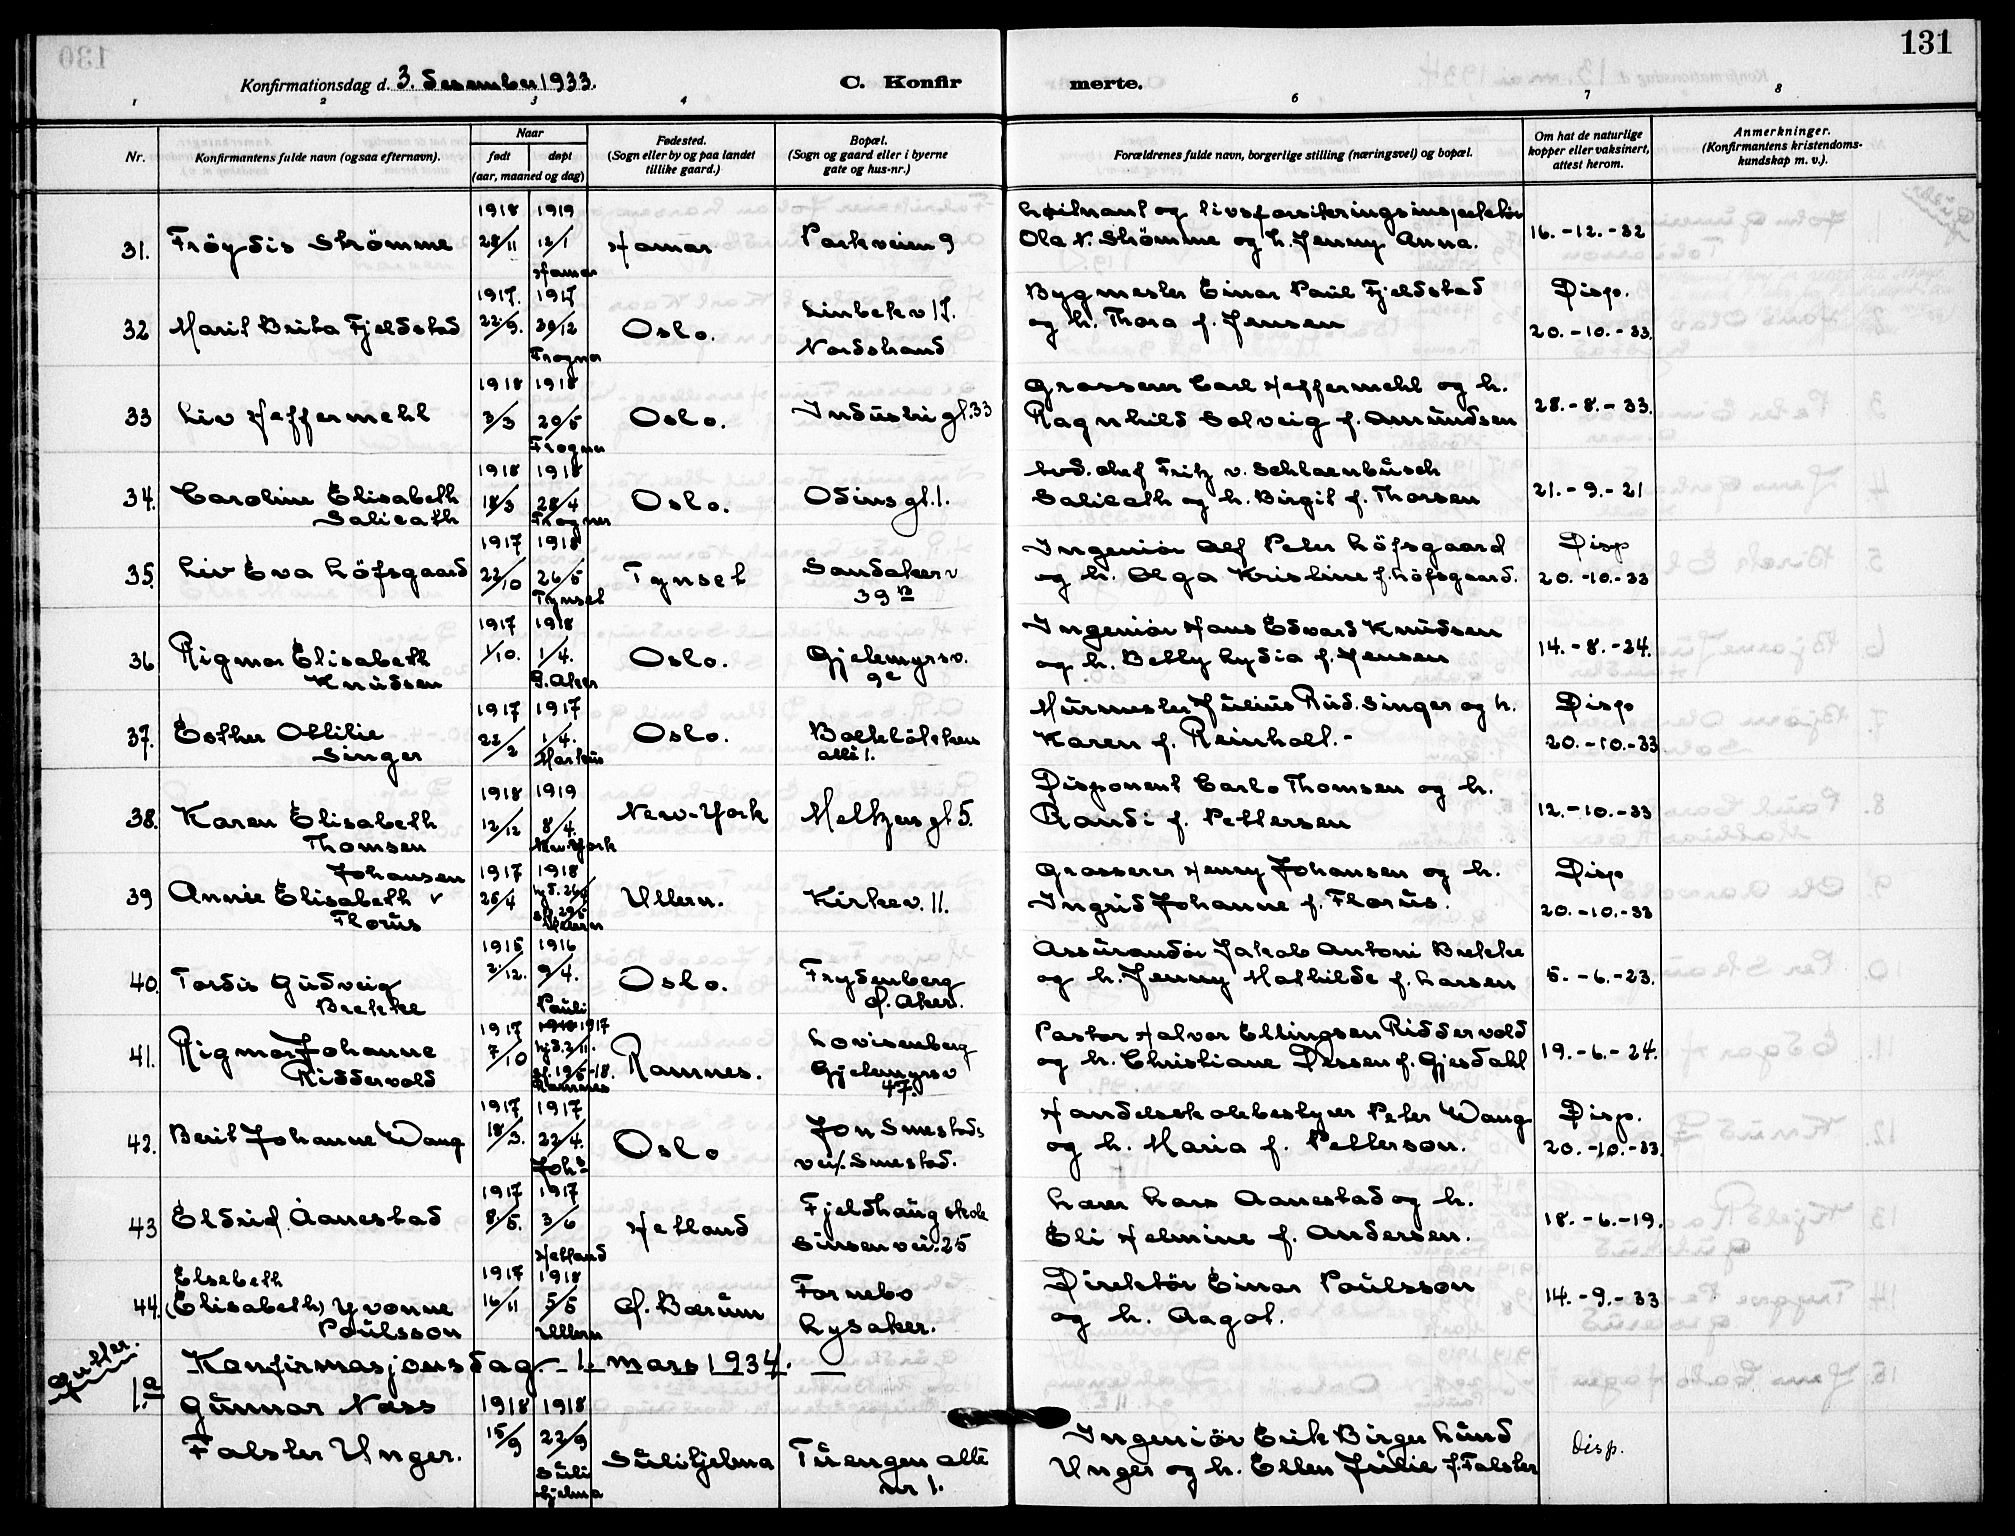 131
Konfirmationsdag d. 3. Desember 1933.
C. Konfir merte.
1 2 3 4 6 7 8
Nr.
Konfirmantens fulde navn (ogsaa efternavn).
Naar
født døpt
(aar, maaned og dag)
Fødested.
(Sogn eller by og paa landet
tillike gaard.)
Bopæl.
(Sogn og gaard eller i byerne
gate og hus-nr.)
Forældrenes fulde navn, borgerlige stilling (næringsvei) og bopæl.
Om hat de naturlige
kopper eller vaksinert,
attest herom.
Anmerkninger.
(Konfirmantens kristendoms-
kundskap m. v.).
1918 1919 Løitnant og livsforsikringsinspektør
31. Frøydis Strømme 28/11 12/1 Hamar Parkveien 9 Ola N. Strømme og h. Jenny Anna. 16.-12.-32
Hamar
1917. 1917 Bygmester Einar Paul Fjeldstad Disp.
32 Marit Brita Fjeldstad 22/9. 30/12 Oslo. Linbekv 17. og h. Thora f. Jensen 20.-10.-33.
Frogner Nordstrand
1918 1918 Grosserer Carl Heffermehl og h.
33 Liv Heffermehl 3/3 20/5 Oslo. Industri gt.33 Ragnhild Solveig f. Amundsen 28.-8.-33.
Frogner
1918 1918 chef Fritz v. Schlaenbusch
34. Caroline Elisabeth 18/3 28/4 Oslo. Odins gt.1. Salicath og h. Birgit f. Thorsen 21.-9.-21
Salicath Frogner
1917 1918 Ingeniør Alf Peter Löfsgaard Disp
35. Liv Eva Löfsgaard 22/10 26/5 Tynset Sandakerv og h. Olga Kristine f. Löfsgaard. 20.-10.-33
Tynset 39 B
1917 1918 Ingeniør Hans Edvard Knudsen
36 Rigmor Elisabeth 1/10. 1/4. Oslo. Gjelemyrsv. og h. Betty Lydia f. Jensen 14.-8.-24.
Knudsen G. Aker 9c
1917 1917 Murmester Julius Rud. Singer og h. Disp
37. Esther Ottilie 22/2 1/4. Oslo. Karen f. Reinholt.- 20.-10.-33
Singer Markus allé 1.
1918 1919 Disponent Carlo Thomsen og h.
38. Karen Elisabeth 12/12 8/4. New-York Meltzers gt 5. Randi f. Pettersen 12.-10.-33
Thomsen New-York
Johansen 1917 1918 Grosserer Henry Johansen og h. Disp
39 Annie Elisabeth v 25/4 Ullern. Kirkev. 11. Ingrid Johanne f. Florus. 20.-10.-33
Florus Ullern
1915 1916 Assurandør Jakob Antoni Brekke
40. Tordis Gudveig 2/12. 9/4. Oslo. Frydenberg og h. Jenny Mathilde f. Larsen 5.-6.-23.
Brekke Pauli Ø. Aker.
1917 1918 1917 Pastor Halvor Ellingsen Riddervold
41. Rigmor Johanne 7/10 hj.d. 2/11. Ramnes. Lovisenberg og h. Christiane Dessen f. Gjesdahl 19.-6.-24.
Riddervold st. 19/5-18. Gjelemyrsv
Ramnes 47.
1917 1917 Handelsskolebestyrer Peter Wang Disp.
42. Berit Johanne Wang 18/3. 22/4. Oslo Jon Smestads og h. Maria f. Petterson. 20.-10.-33.
Johs vei. Smestad.
1917 1917 Lærer Lars Aanestad og h.
43 Eldrid Aanestad 8/5. 3/6 Hetland Fjeldhaug skole Eli Helmine f. Andersen. 18.-6.-19.
Hetland Sinsenvei. 25
Elsebeth 1917 1918 Direktør Einar Paulsson
44. (Elisabeth) Yvonne 16/11 5/5 Ø. Bærum Fornebo og h. Aagot. 14.-9.-33
Paulsson Ullern Lysaker.
Gutter.
Konfirmasjonsdag.- 1. mars 1934. -
1.a Gunnar Næss 1918 1918
Falster Unger. 15/9 22/9 Sulitjelma Tuengen allé Ingeniør Erik Birger Lund Disp.
Suli tjelma nr 1. Unger og h. Ellen Julie f. Falster